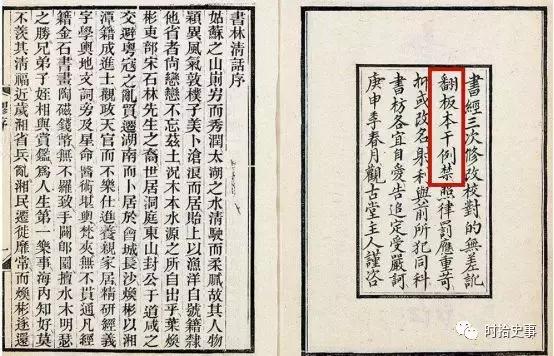 書經三次修改校對的無差訛
翻板本干例禁照律罰應重苛
抑或改名射利與前所犯同科
書坊各宜自愛告追定受嚴訶
庚申季春月觀古堂主人謹咨
書林清話序
姑蘇之山崱屴而秀潤太湖之水清駛而柔膩故其人物
穎異風氣敦樸子美卜滄浪而居貽上以漁洋自號籍隸
他省者尚戀戀不忘茲土況木本水源之所自出乎葉煥
彬吏部宋石林先生之裔世居洞庭東山封公于道咸之
交避粵寇之亂賈遷湖南而卜居於會城長沙煥彬以湘
潭籍成進士觀政天官而不樂仕進養親家居精研經義
字學輿地文詞旁及星命醫術堪輿梵夾無不貫通凡經
籍金石書畫陶磁錢幣無不羅致手闢郋園擅水木明瑟
之勝兄弟子姪相與賞鑑為人生第一樂事海內知好莫
不羨其清福近歲湘省兵亂湘民遷徙靡常而煥彬逐還
繆序
时拾史事